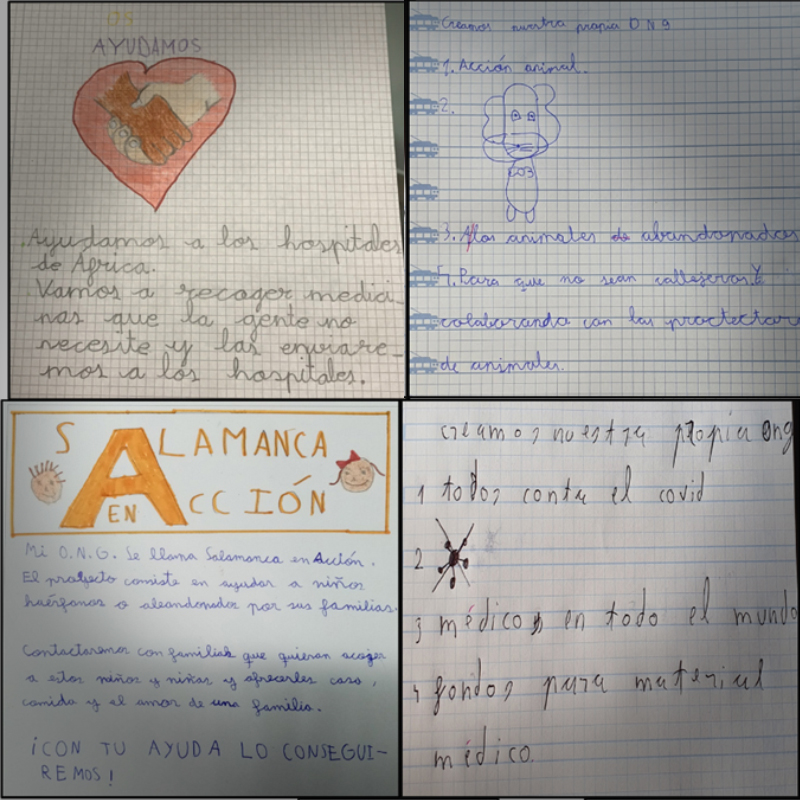 OS
AYUDAMOS
Ayudamos a los hospitales
de África.
Vamos a recoger medici-
nas que la gente no
necesite y las enviare-
mos a los hospitales.
Creamos nuestra propia O N g
1. Acción animal.
2.
3. A los animales abandonados
4. Para que no sean callejeros. Y
colaboranda con las proctectoras
de animales.
SALAMANCA
EN ACCIÓN
Mi O.N.G. se llama Salamanca en Acción.
El proyecto consiste en ayudar a niños
huérfanos o abandonados por sus familias.
Contactaremos con familias que quieran acoger
a estos niños y niñas y ofrecerles casa,
comida y el amor de una familia.
¡CON TU AYUDA LO CONSEGUI-
REMOS!
creamos nuestra propia ong
1 todos contra el covid
2
3 médicos en todo el mundo
4 fondos para material
médico.